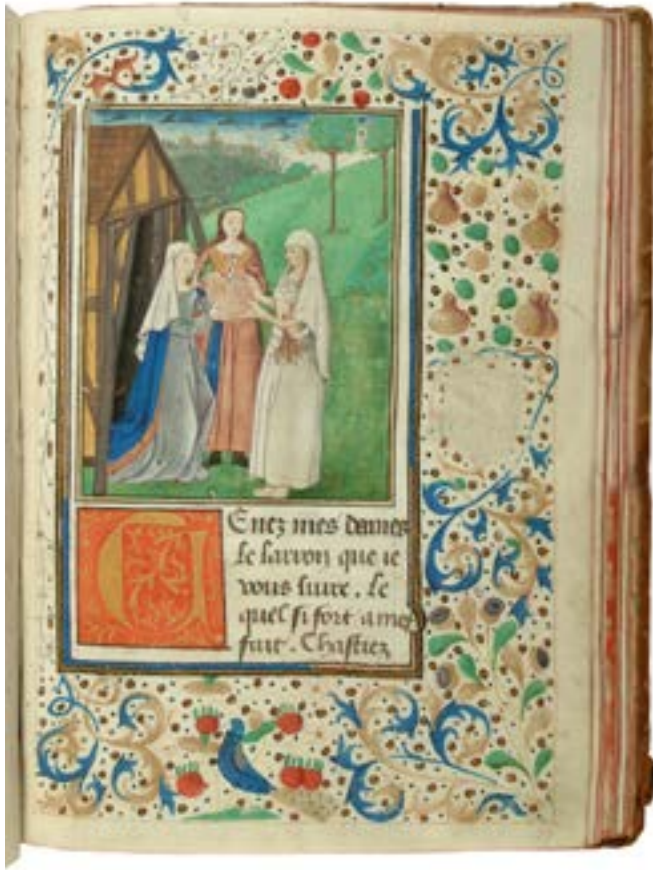 Tenez mes dames
le larron que ie
vous liure. Le
quel si fort a mef
fait. Chastiez